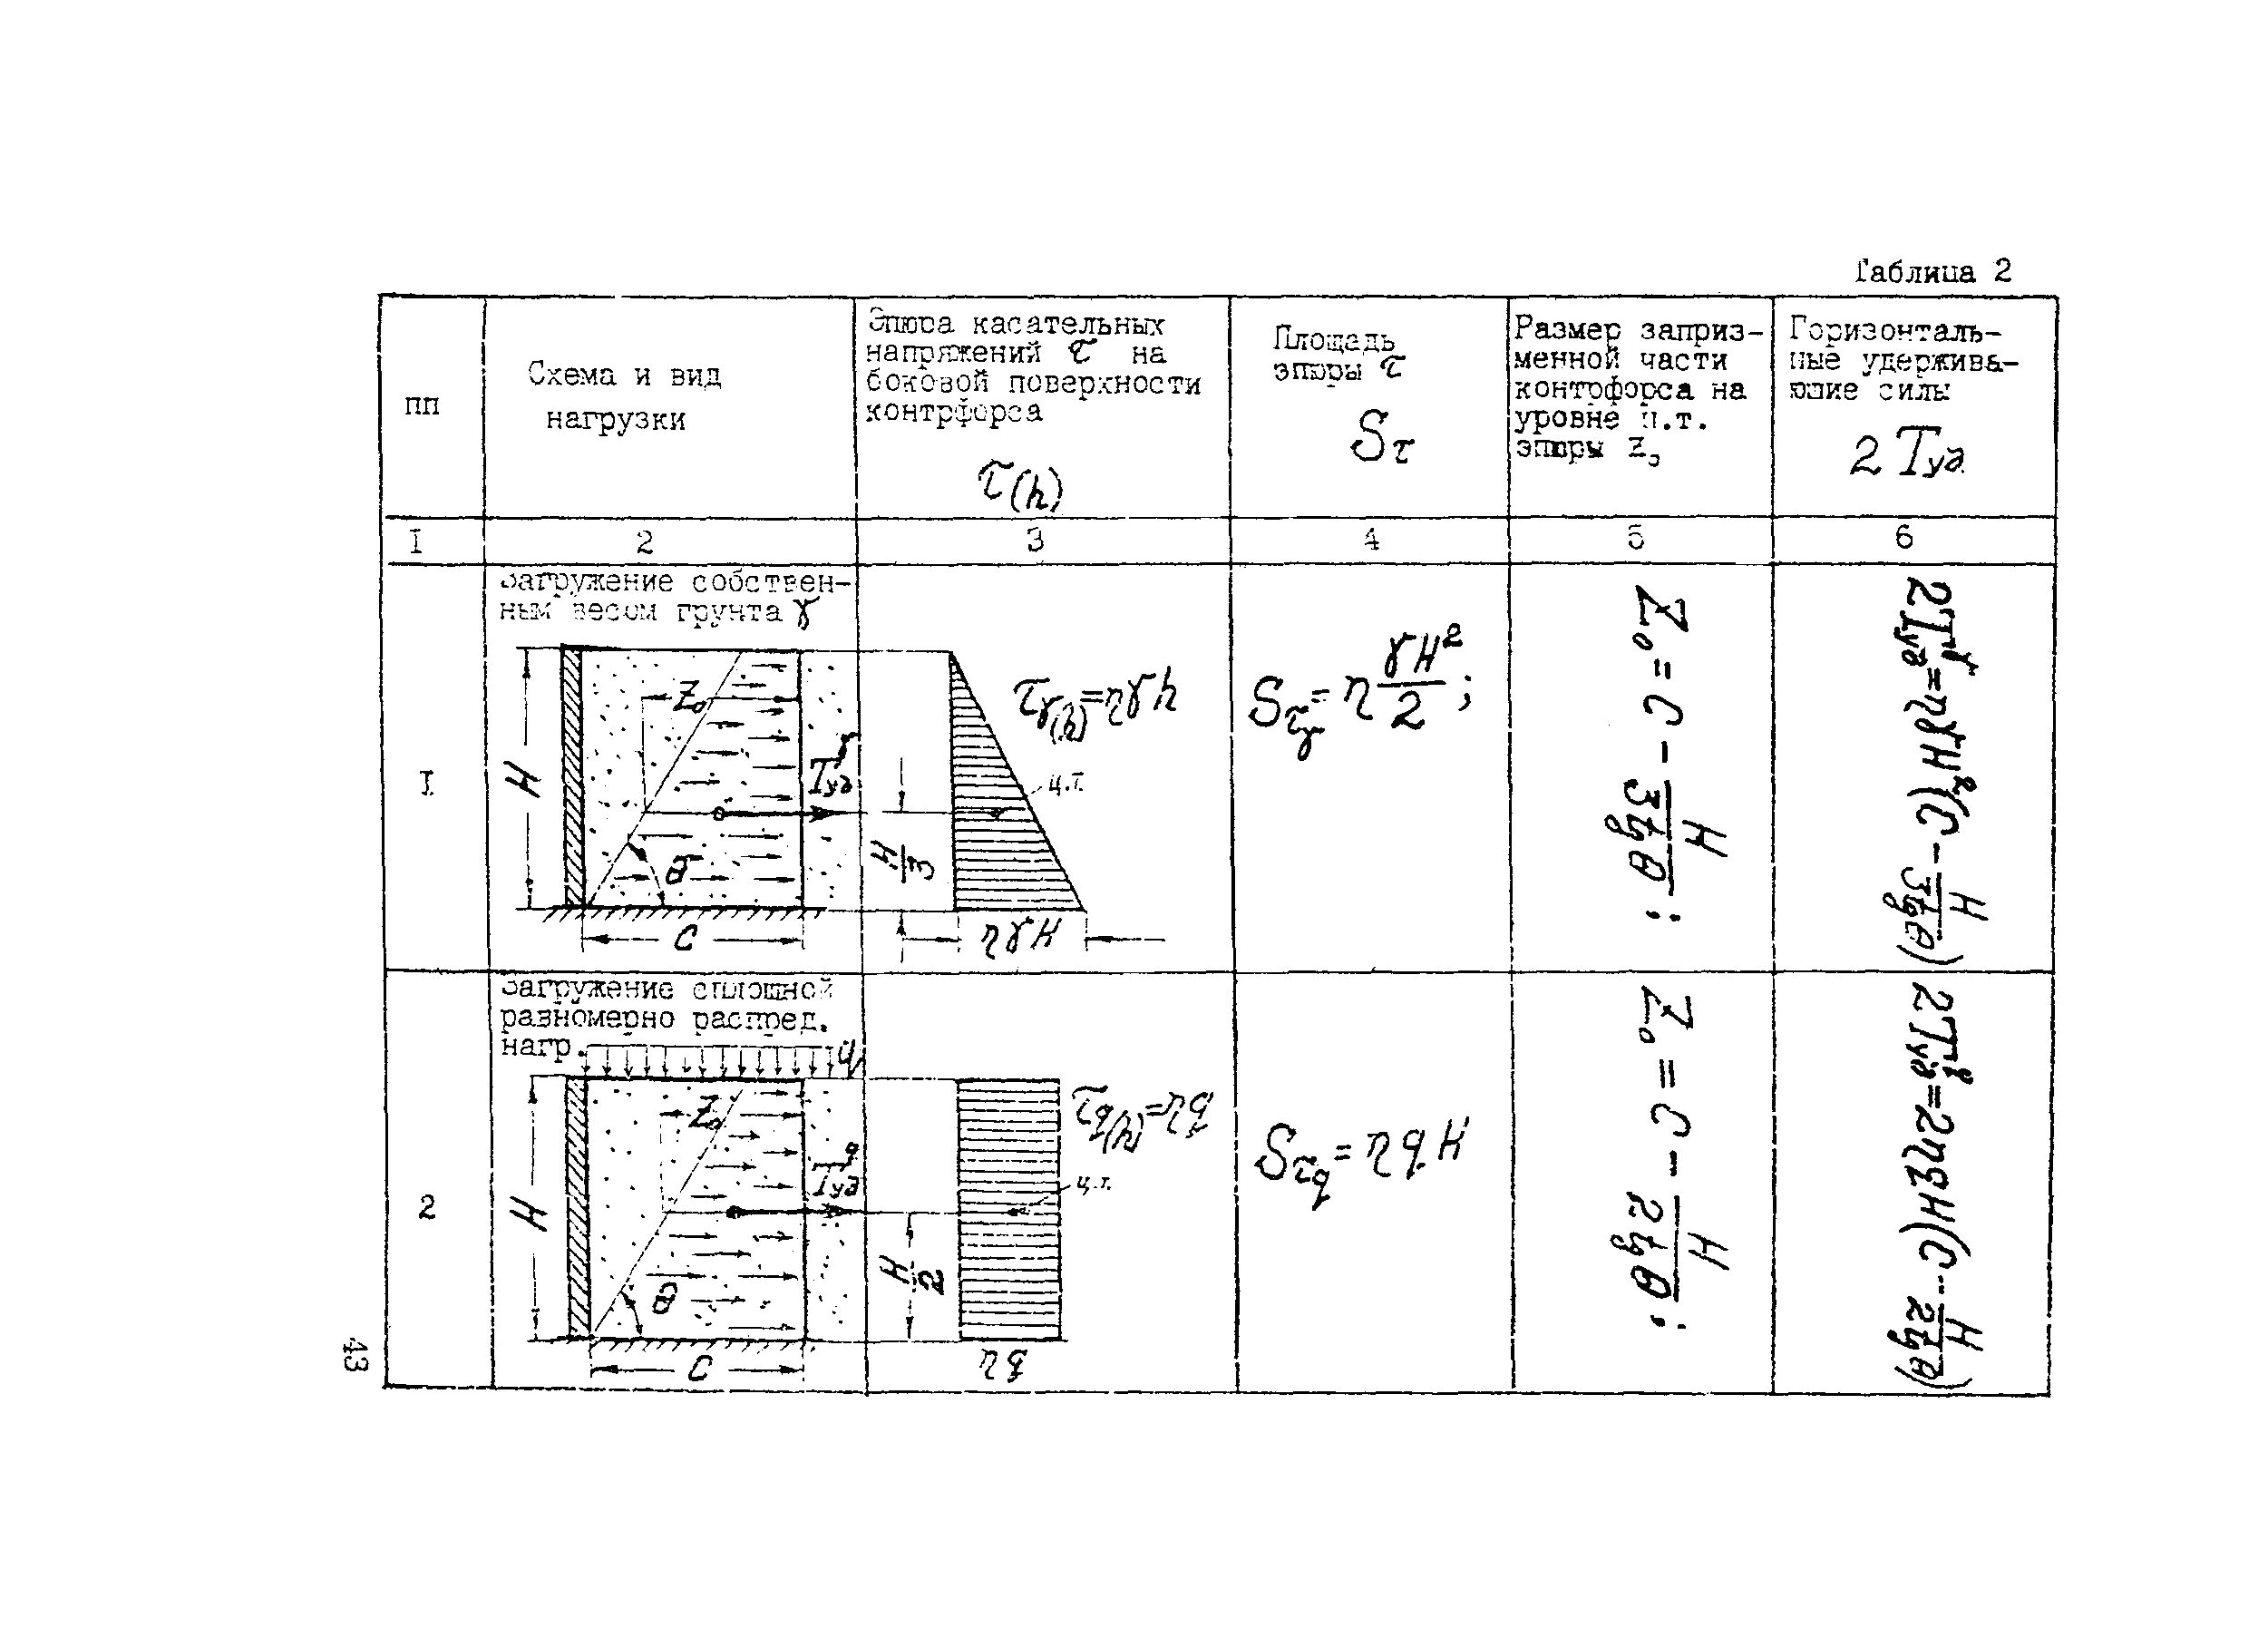 Таблица 2
пп
Схема и вид
нагрузки
Эпюра касательных
напряжений τ на
боковой поверхности
контрфорса
τ(h)
Площадь
эпюры τ
Sτ
Размер заприз-
менной части
контрфорса на
уровне ц.т.
эпюры Z₀
Горизонталь-
ные удержива-
ющие силы
2Tуд
I
2
3
4
5
6
I
Загружение собствен-
ным весом грунта γ
H
Z₀
Tуд^γ
θ
C
τγ(h)=ηγh
ц.т.
H/3
ηγH
Sτγ=η γH²/2;
Z₀=C-H/3tgθ;
2Tуд^γ=ηγH²(C-H/3tgθ)
2
Загружение сплошной
равномерно распред.
нагр.
q
H
Z₀
Tуд^q
θ
C
τq(h)=ηq
ц.т.
H/2
ηq
Sτq=ηqH
Z₀=C-H/2tgθ;
2Tуд^q=2ηqH(C-H/2tgθ)
43